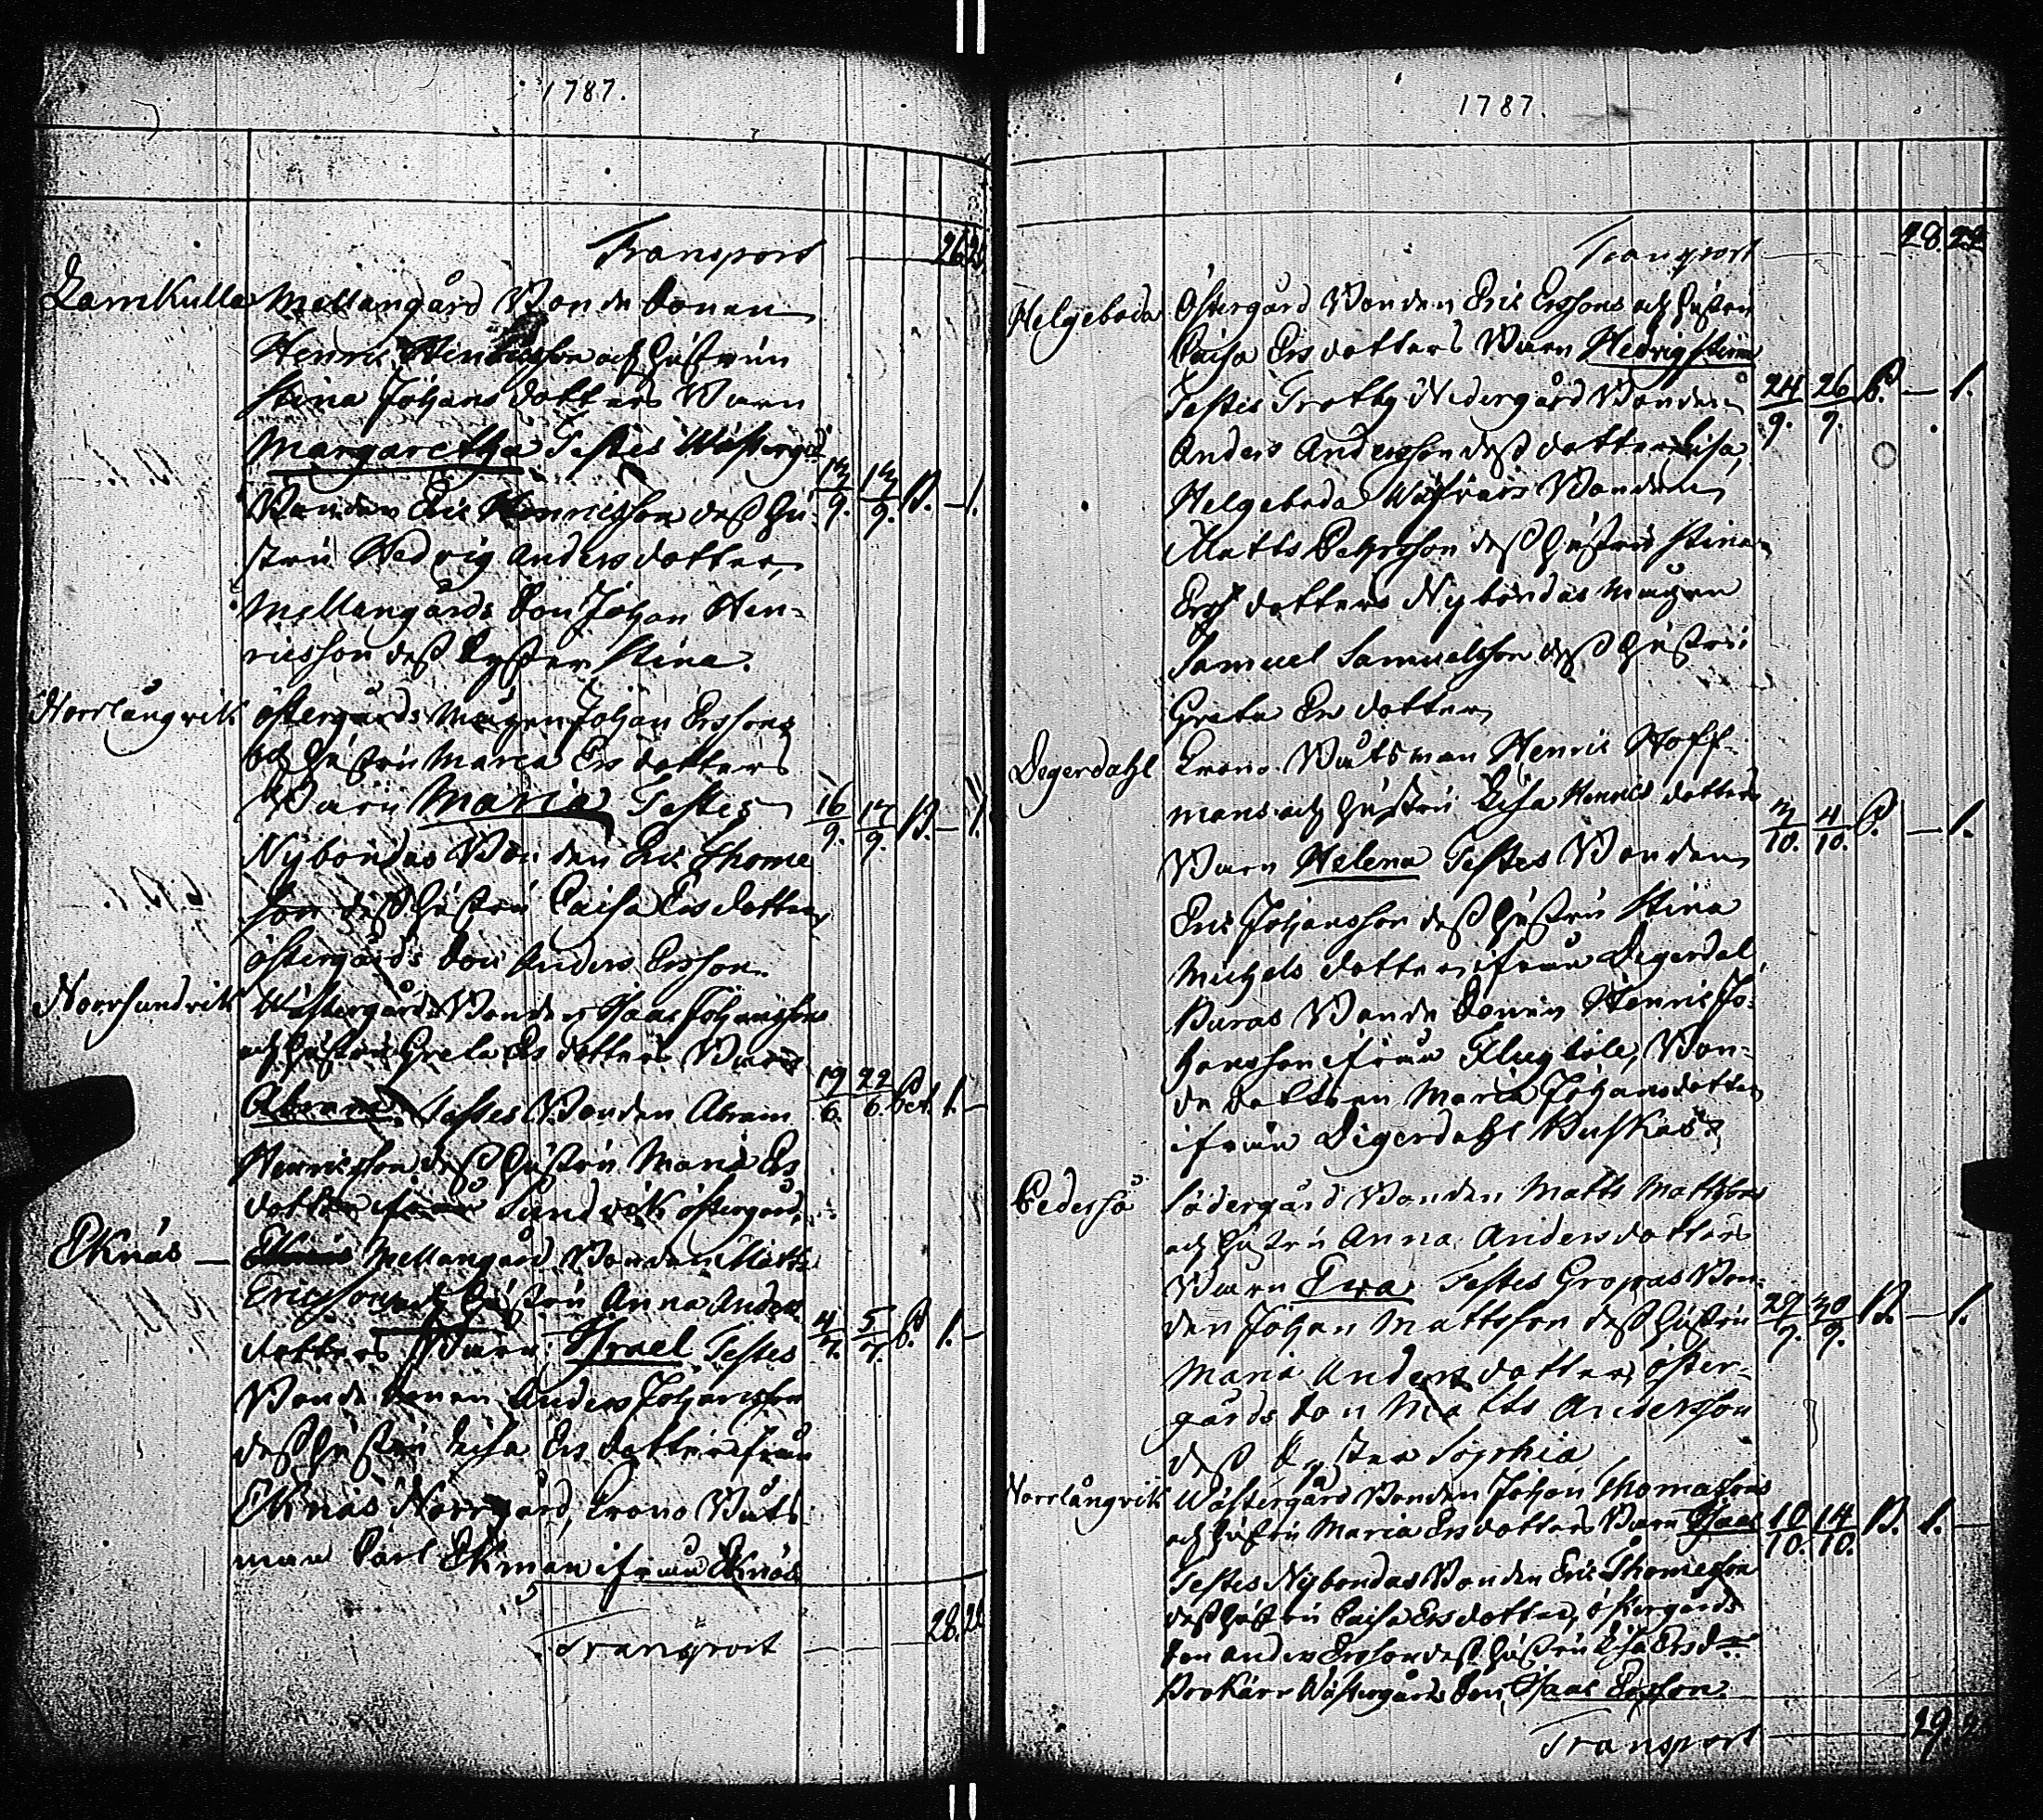 1787.
Transport 26. 20
Lamkulla Mellangård Bonde Sonen
Henric Henricsson och Hustrun
Stina Johans dotters Barn
Margaretha Testes Wästergård
13/9. 13/9. B. — 1.
Bonden Eric Henricsson dess Hu-
stru Hedvig Anders dotter,
Mellangårds Son Johan Hen-
ricsson dess Syster Stina.
Norrlångvik Östergårds Mågen Johan Erssons
och Hustru Maria Ers dotters
Barn Maria Testes
16/9. 17/9. B. — 1.
Nybondas Bonden Eric Thome
son dess Hustru Caisa Ers dotter
Östergårds Son Anders Ersson.
Norrsundvik Wästergårds Bonden Isaac Johanssons
och Hustru Greta Ers dotters Barn
Abram. Testes Bonden Abram
19/6. 22/6. 1. —
Henricsson dess Hustru Maria Ers
dotter ifrån Sundvik Östergård.
Eknäs — Mellangård Bonden Matts
Ericssons och Hustru Anna Anders
dotters Barn Israel Testes
4/7. 5/7. B. 1. —
Bonde Sonen Anders Johansson
dess Hustru Lisa Ers dotter ifrån
Eknäs Norrgård, Crono Båts
man Carl Ekman ifrån Eknäs
Transport 28. 22
1787.
Transport 28. 22
Helgeboda Östergård Bonden Eric Erssons och Hustru
Caisa Ers dotters Barn Hedvig Stina
Testes Trotby Nedergård Bonden
24/9. 26/9. B. — 1.
Anders Andersson dess dotter Lisa,
Helgeboda Bonden
Matts Pehrsson dess Hustru Stina
Ers dotter Nybondas Mågen
Samuel Samuelsson dess Hustru
Greta Ers dotter
Degerdahl Crono Båtsman Henric Hoff-
mans och Hustru Lisa Henrics dotters
3/10. 4/10. B. — 1.
Barn Helena Testes Bonden
Eric Johansson dess Hustru Stina
Michels dotter ifrån Degerdal,
Buras Bonde Sonen Henric Jo-
hansson ifrån Flugböle, Bon-
de dottren Maria Johans dotter
ifrån Digerdahl Buskas.
Pedersö Södergård Bonden Matts Mattssons
och Hustru Anna Anders dotters
Barn Eva Testes Gropas Bon-
den Johan Mattsson dess Hustru
29/9. 30/9. B. — 1.
Maria Anders dotter, Öster-
gårds Son Matts Andersson
dess Syster Sophia
Norrlångvik Wästergård Bonden Johan Thomassons
och Hustru Maria Ers dotters Barn Isaac
10/10. 14/10. B. 1. —
Testes Nybondas Bonden Eric Thomesson
dess Hustru Caisa Ers dotter, Östergårds
Son Anders Ersson dess Hustru Lisa Ers d:r
Prokärr Wästergårds Son Isaac Ersson.
Transport 29.